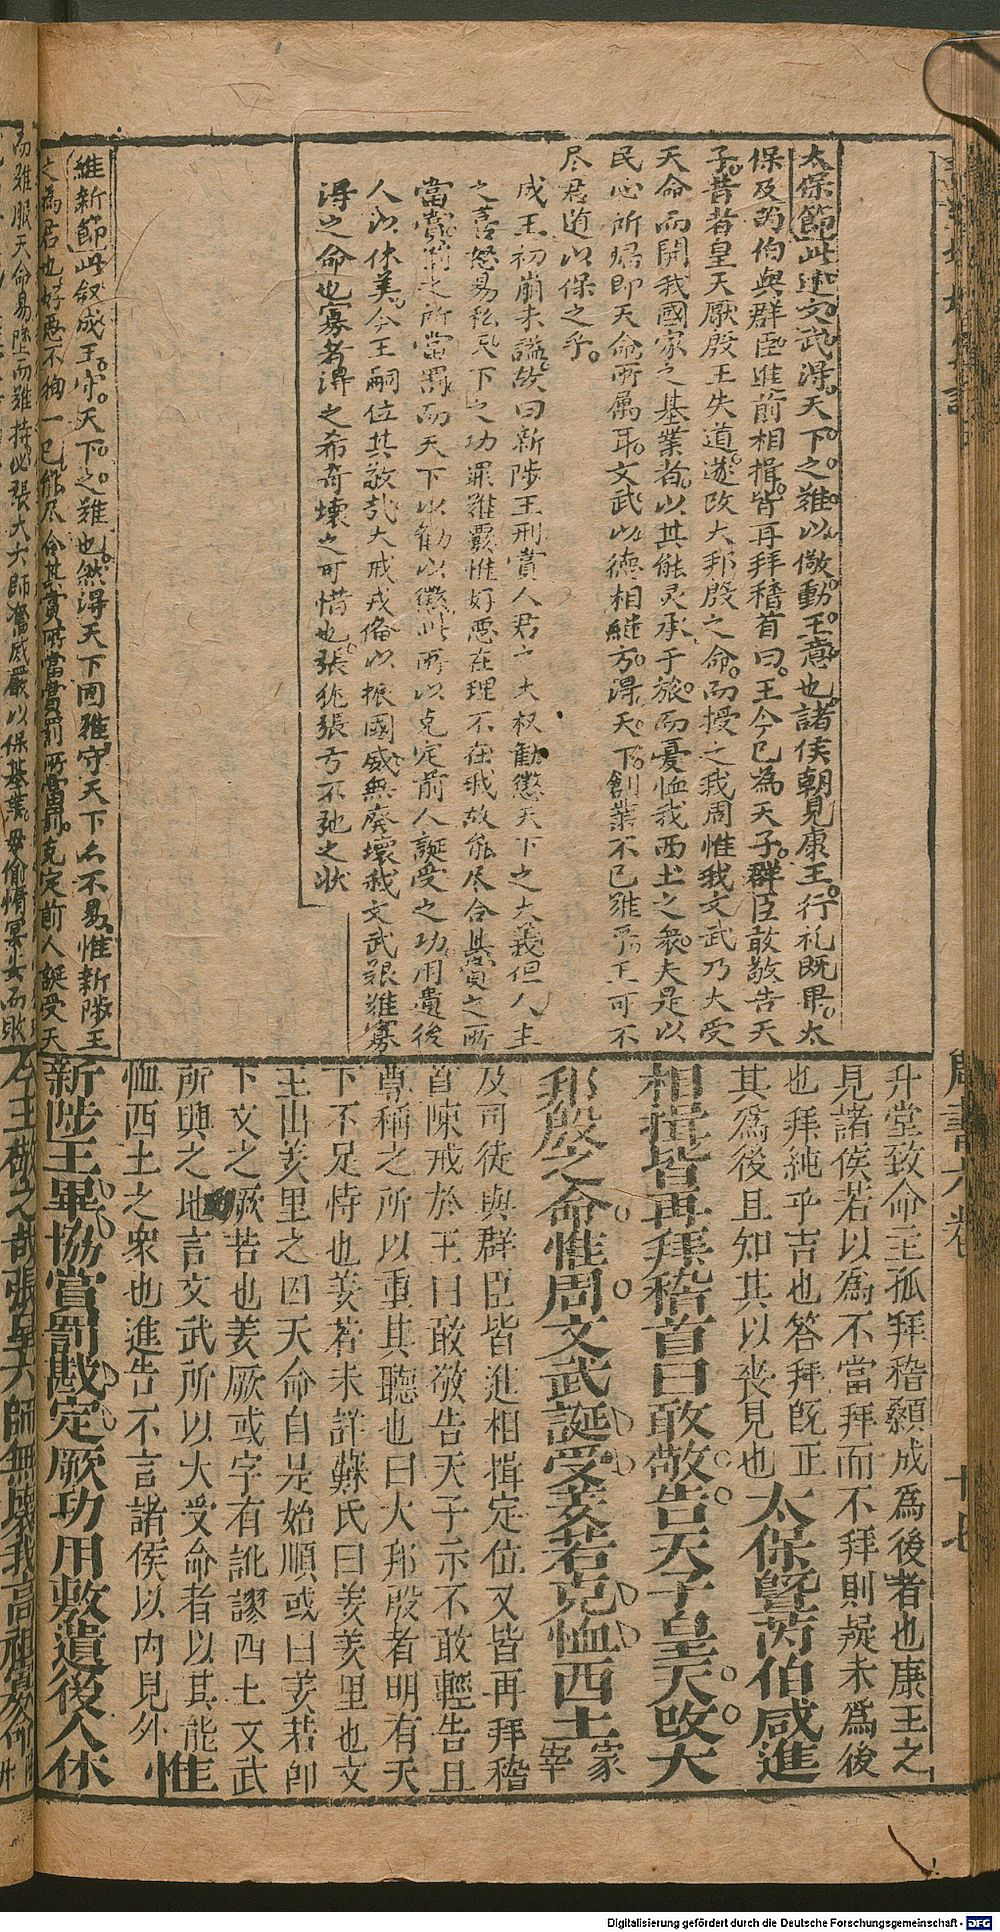 太保節此述文武得天下之難以儆動王意也諸侯朝見康王行礼既畢太
保及芮伯與群臣進前相揖皆再拜稽首曰王今已為天子群臣敢敬告天
子昔者皇天厭殷王失道遂改大邦殷之命而授之我周惟我文武乃大受
天命而開我國家之基業者以其能灵承于旅而憂恤我西土之衆夫是以
民心所归即天命所属耳文武以德相継方得天下創業不已難乎王可不
尽君道以保之乎
成王初崩未謚故曰新陟王刑賞人君之大权勧懲天下之大義但人主
之喜怒易私天下之功罪難覈惟好惡在理不在我故能尽合其賞之所
當賞罰之所當罰而天下以勧以懲此所以克定前人誕受之功用遺後
人以休美今王嗣位其敬哉大戒戎俻以振國威無廃壊我文武艱難寡
得之命也寡者得之希奇壊之可惜也張弛張弓不弛之状
維新節此叙成王守天下之難也然得天下固难守天下尤不易惟新陟王
之為君也好惡不狥一已能尽合其賞所當賞罰所當罰克定前人誕受天
而難服天命易墜而難持必張大六師奮威嚴以保基業毋偷惰宴安而敗
升堂致命主孤拜稽顙成為後者也康王之
見諸侯若以為不當拜而不拜則疑未為後
也拜純乎吉也答拜既正
其為後且知其以喪見也 太保曁芮伯咸進
相揖皆再拜稽首曰敢敬告天子皇天改大
邦殷之命惟周文武誕受羑若克恤西土 冢宰
及司徒與群臣皆進相揖定位又皆再拜稽
首陳戒於王曰敢敬告天子示不敢輕告且
尊稱之所以重其聽也曰大邦殷者明有天
下不足恃也羑若未詳蘇氏曰羑羑里也文
王出羑里之囚天命自是始順或曰羑若即
下文之厥若也羑厥或字有訛謬西土文武
所興之地言文武所以大受命者以其能
恤西土之衆也進告不言諸侯以内見外 惟
新陟王畢協賞罰戡定厥功用敷遺後人休
今王敬之哉張皇六師無壊我高祖寡命
周書六卷
Digitalisierung gefördert durch die Deutsche Forschungsgemeinschaft - DFG